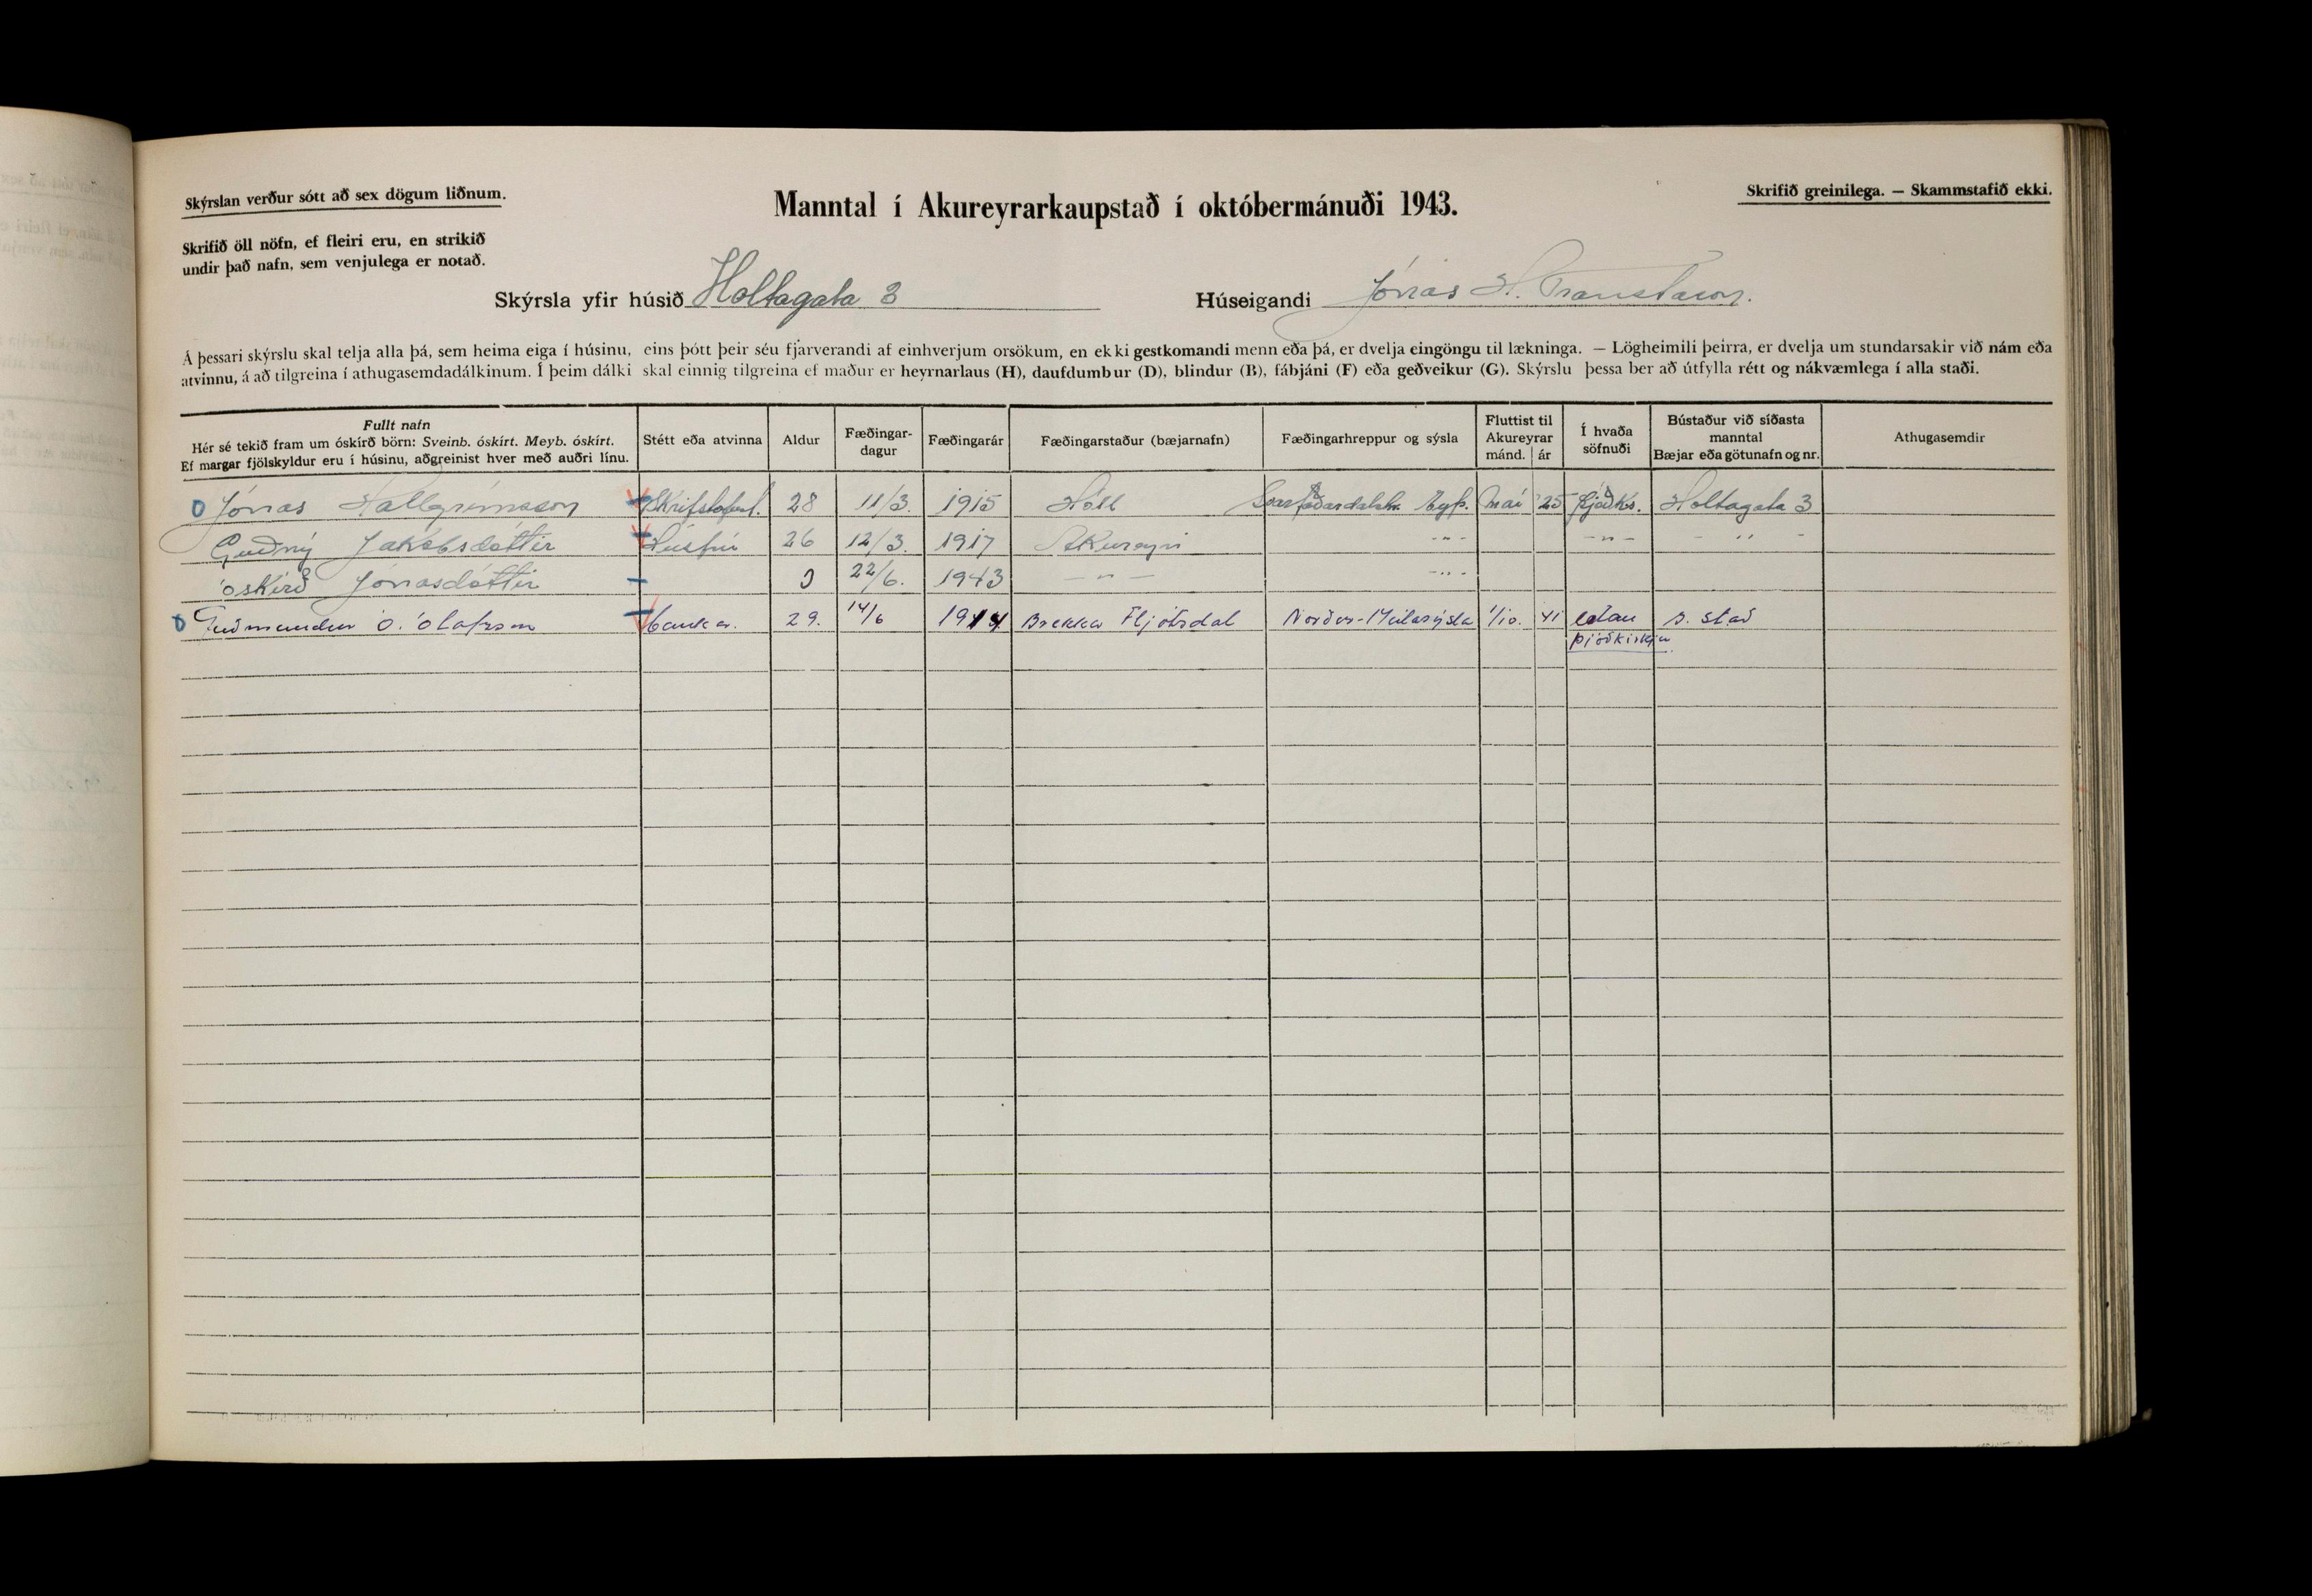 Skýrslan verður sótt að sex dögum liðnum.
Manntal í Akureyrarkaupstað í októbermánuði 1943.
Skrifið greinilega. — Skammstafið ekki.
Skrifið öll nöfn, ef fleiri eru, en strikið
undir það nafn, sem venjulega er notað.
Skýrsla yfir húsið Holtagata 3 Húseigandi Jónas H. Traustason.
Á þessari skýrslu skal telja alla þá, sem heima eiga í húsinu, eins þótt þeir séu fjarverandi af einhverjum orsökum, en ekki gestkomandi menn eða þá, er dvelja eingöngu til lækninga. — Lögheimili þeirra, er dvelja um stundarsakir við nám eða
atvinnu, á að tilgreina í athugasemdadálkinum. Í þeim dálki skal einnig tilgreina ef maður er heyrnarlaus (H), daufdumbur (D), blindur (B), fábjáni (F) eða geðveikur (G). Skýrslu þessa ber að útfylla rétt og nákvæmlega í alla staði.
Fullt nafn
Hér sé tekið fram um óskírð börn: Sveinb. óskírt. Meyb. óskírt.
Ef margar fjölskyldur eru í húsinu, aðgreinist hver með auðri línu.
Stétt eða atvinna
Aldur
Fæðingar-
dagur
Fæðingarár
Fæðingarstaður (bæjarnafn)
Fæðingarhreppur og sýsla
Fluttist til
Akureyrar
mánd. ár
Í hvaða
söfnuði
Bústaður við síðasta
manntal
Bæjar eða götunafn og nr.
Athugasemdir
Jónas Hallgrímsson Skrifstofum. 28 11/3. 1915 Hóll Svarfaðardalshr. Eyf. Maí '25 Þjóðks. Holtagata 3
Guðný Jakobsdóttir Húsfrú 26 12/3. 1917 Akureyri -"- -"- - " -
óskírð Jónasdóttir 0 22/6. 1943 -"- -"-
Guðmundur Ó. Ólafsson banka. 29. 14/6 1914 Brekka Fljótsdal Norður-Múlasýsla 1/10. 41 utan s. stað
þjóðkirkju